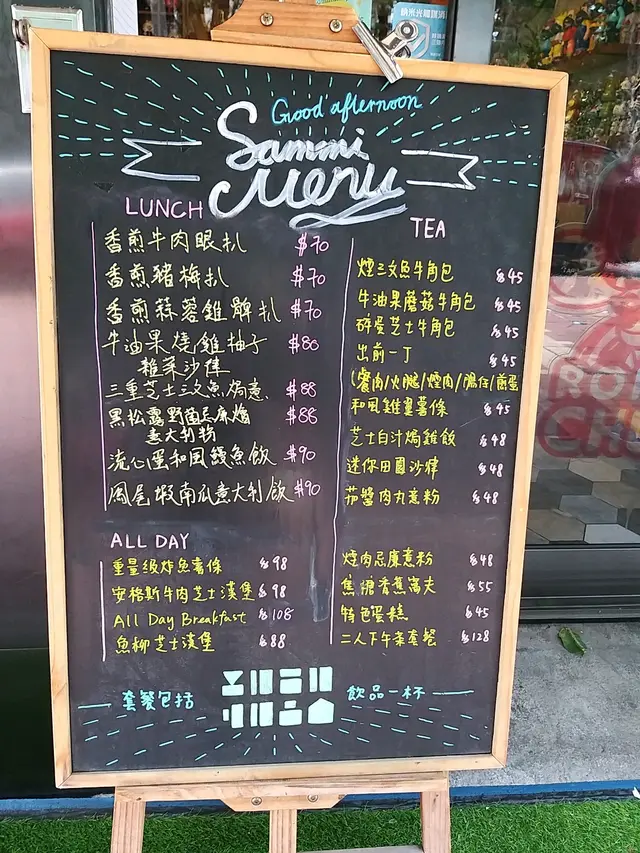 Good afternoon
Sammi
Menu
LUNCH
香煎牛肉眼扒 $70
香煎豬梅扒 $70
香煎蒜蓉雞髀扒 $70
牛油果燒雞柚子 $80
雜菜沙律
三重芝士三文魚焗意 $88
黑松露野菌忌廉燴 $88
意大利粉
流心蛋和風鰻魚飯 $90
鳳尾蝦南瓜意大利飯 $90
ALL DAY
重量級炸魚薯條 $98
安格斯牛肉芝士漢堡 $98
All Day Breakfast $108
魚柳芝士漢堡 $88
TEA
煙三文魚牛角包 $45
牛油果蘑菇牛角包 $45
碎蛋芝士牛角包 $45
出前一丁 $45
(餐肉/火腿/煙肉/腸仔/煎蛋
和風雞翼薯條 $45
芝士白汁焗雞飯 $48
迷你田園沙律 $48
茄醬肉丸意粉 $48
燒肉忌廉意粉 $48
焦糖香蕉窩夫 $55
特色蛋糕 $45
二人下午茶套餐 $128
套餐包括
飲品一杯